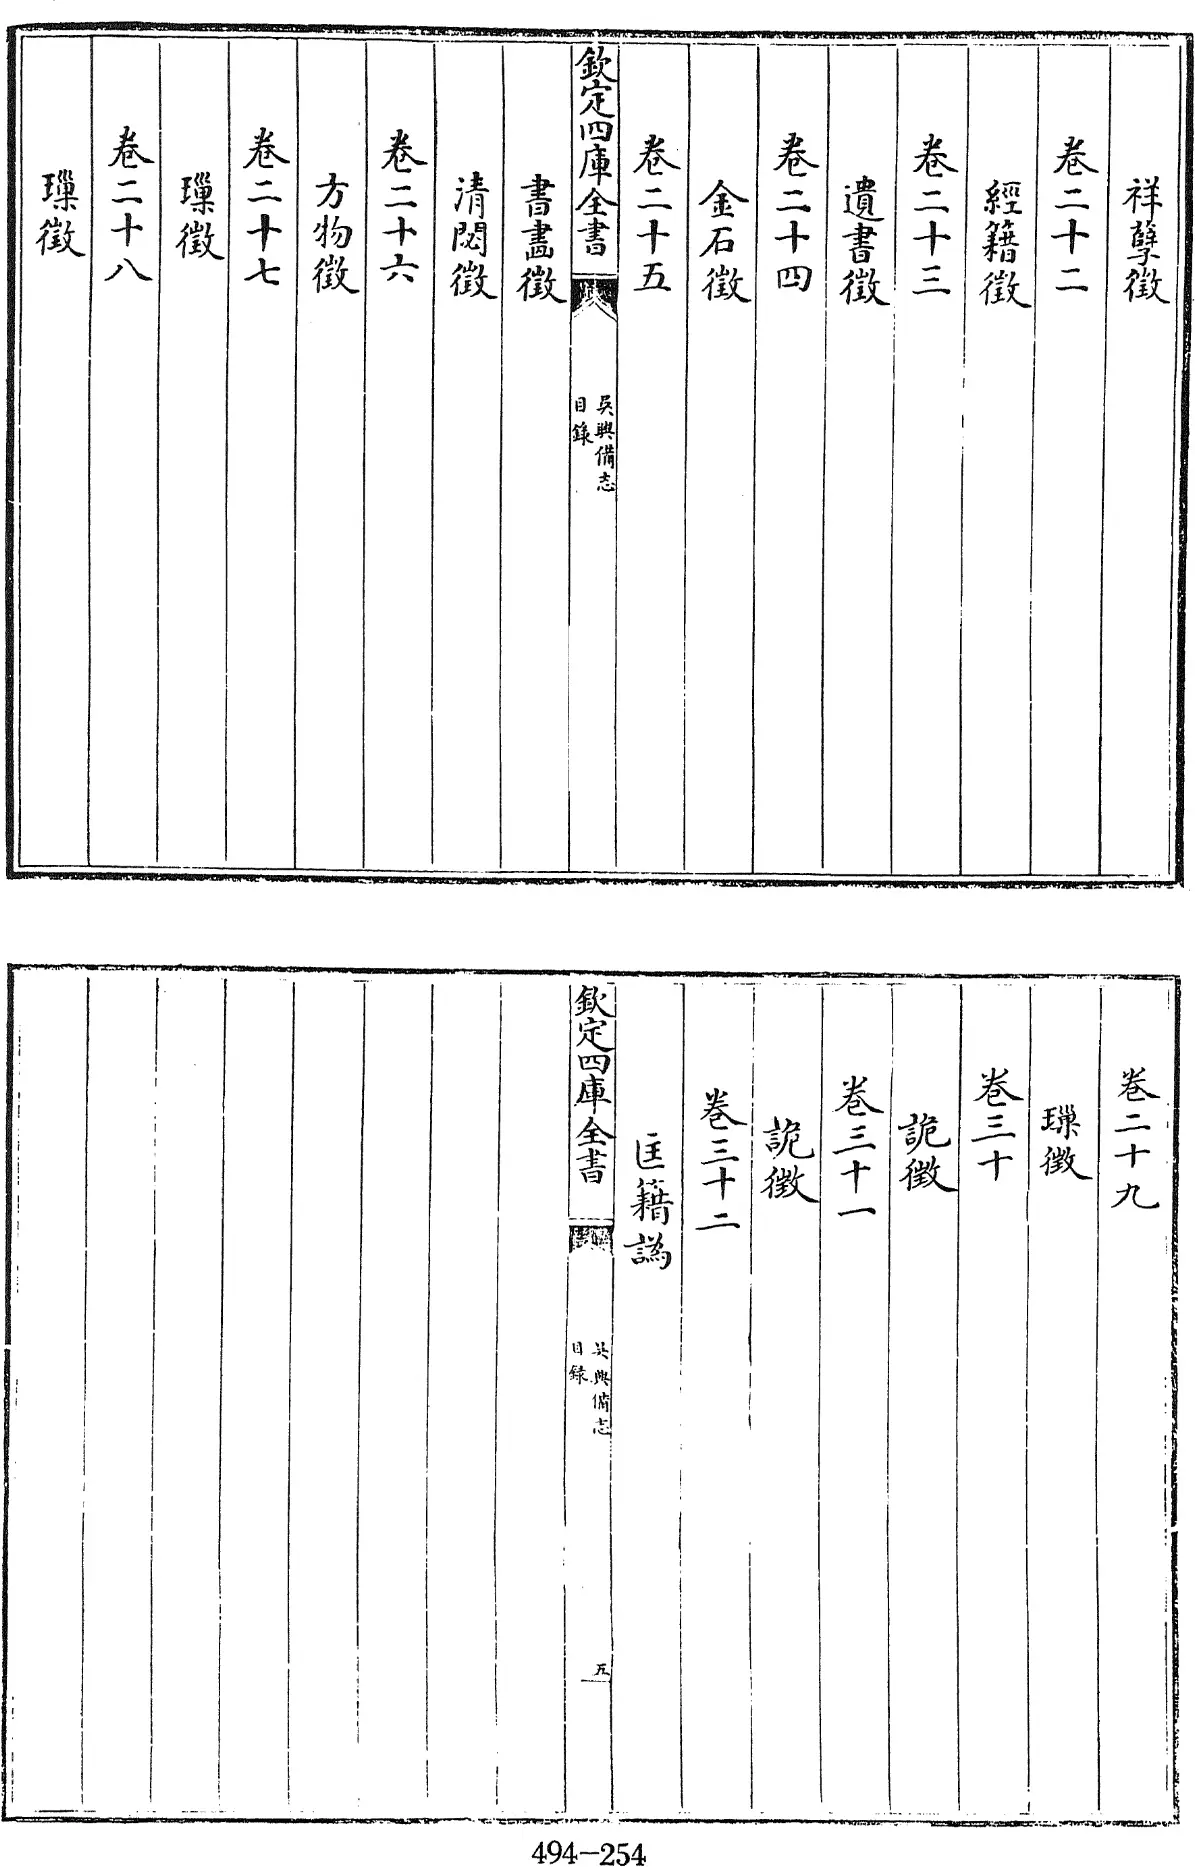 祥孽徵
卷二十二
經籍徵
卷二十三
遺書徵
卷二十四
金石徵
卷二十五
欽定四庫全書
吳興備志
目錄
書畫徵
清閟徵
卷二十六
方物徵
卷二十七
璅徵
卷二十八
璅徵
卷二十九
璅徵
卷三十
詭徵
卷三十一
詭徵
卷三十二
匡籍譌
欽定四庫全書
吳興備志
目錄
五
494-254